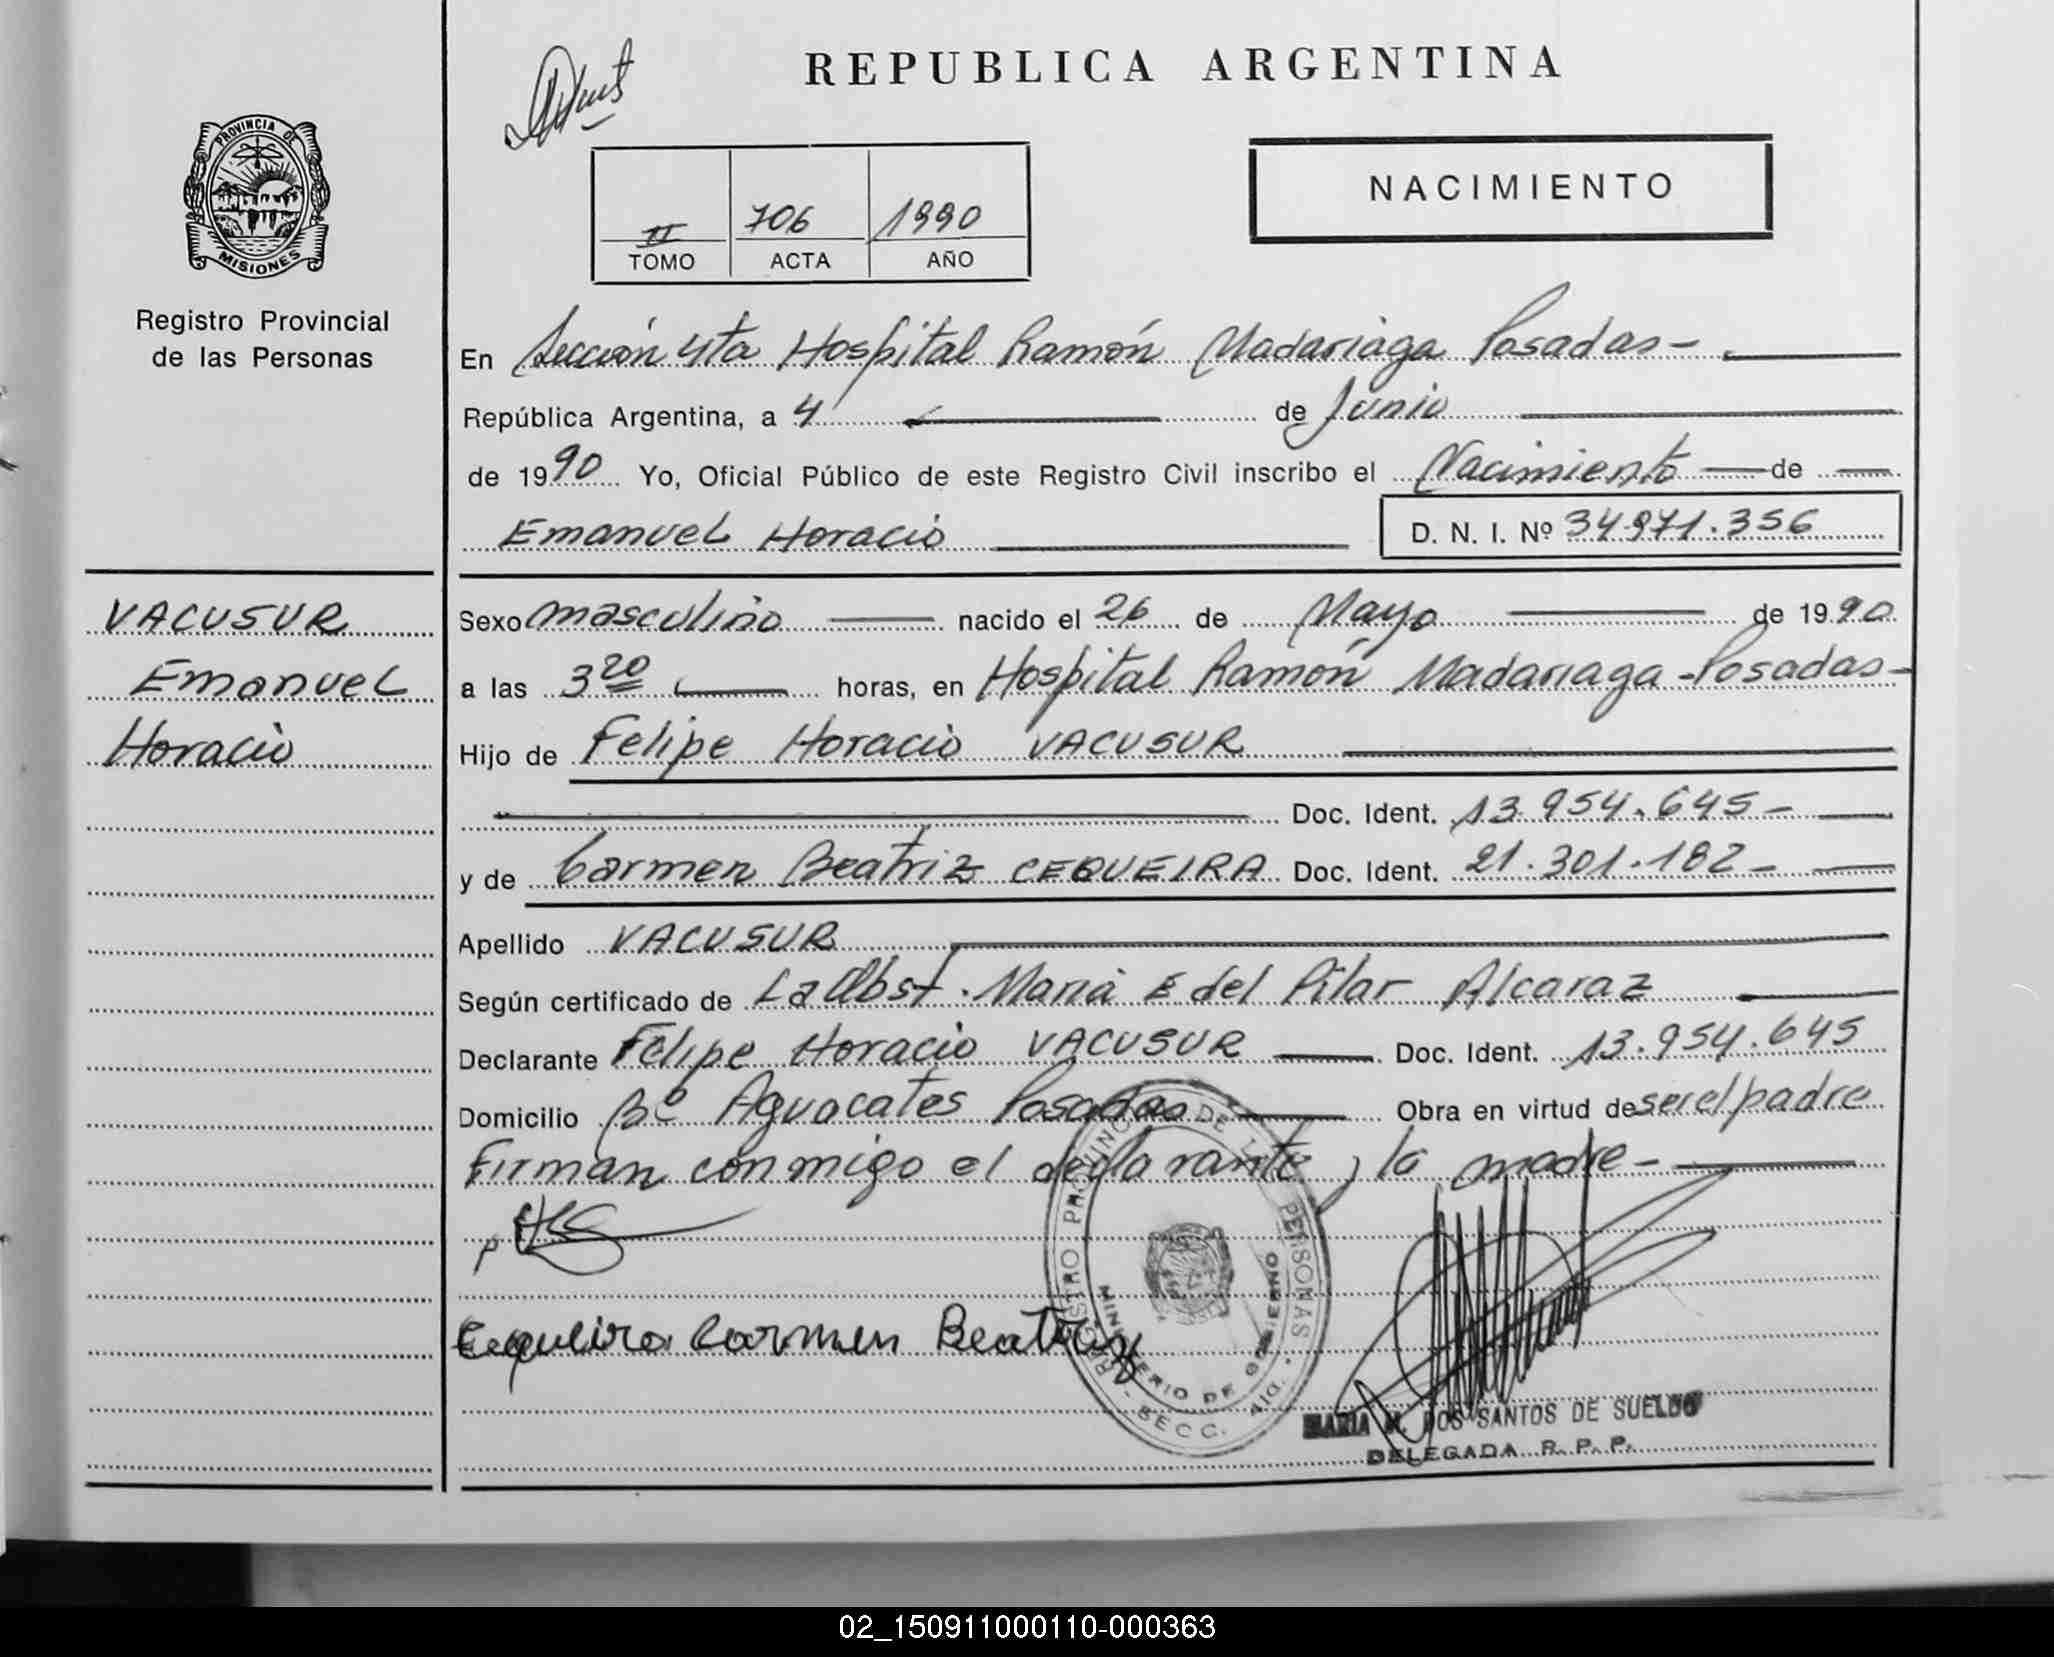 REPUBLICA ARGENTINA
NACIMIENTO
II 706 1990
TOMO ACTA AÑO
PROVINCIA DE
MISIONES
Registro Provincial
de las Personas
En Sección 4ta Hospital Ramón Madariaga Posadas -
República Argentina, a 4 de Junio
de 1990 Yo, Oficial Público de este Registro Civil inscribo el Nacimiento de
Emanuel Horacio D. N. I. Nº 34.971.356
VACUSUR
Emanuel
Horacio
Sexo masculino nacido el 26 de Mayo de 1990
a las 3 20 horas, en Hospital Ramón Madariaga - Posadas -
Hijo de Felipe Horacio VACUSUR
Doc. Ident. 13.954.645 -
y de Carmen Beatriz CEQUEIRA Doc. Ident. 21.301.182 -
Apellido VACUSUR
Según certificado de La Obst. Maria E del Pilar Alcaraz
Declarante Felipe Horacio VACUSUR Doc. Ident. 13.954.645
Domicilio Bº Aguacates Posadas Obra en virtud de ser el padre
Firman conmigo el declarante y la madre -
Cequeira Carmen Beatriz
REGISTRO PROVINCIAL DE LAS PERSONAS
MINISTERIO DE GOBIERNO
SECC. 4ta.
MARIA M. DOS SANTOS DE SUELDO
DELEGADA R. P. P.
02_150911000110-000363